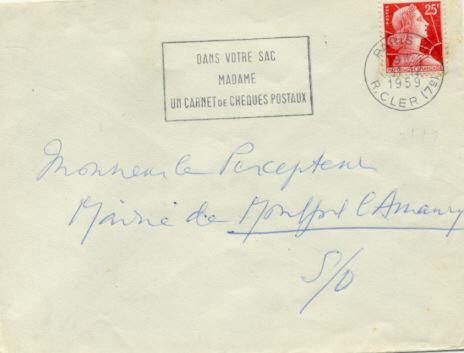 DANS VOTRE SAC
MADAME
UN CARNET DE CHEQUES POSTAUX
POSTES
25F
PARIS
1959
R.CLER (7e)
Monsieur le Percepteur
Mairie de Montfort l'Amaury
S/O